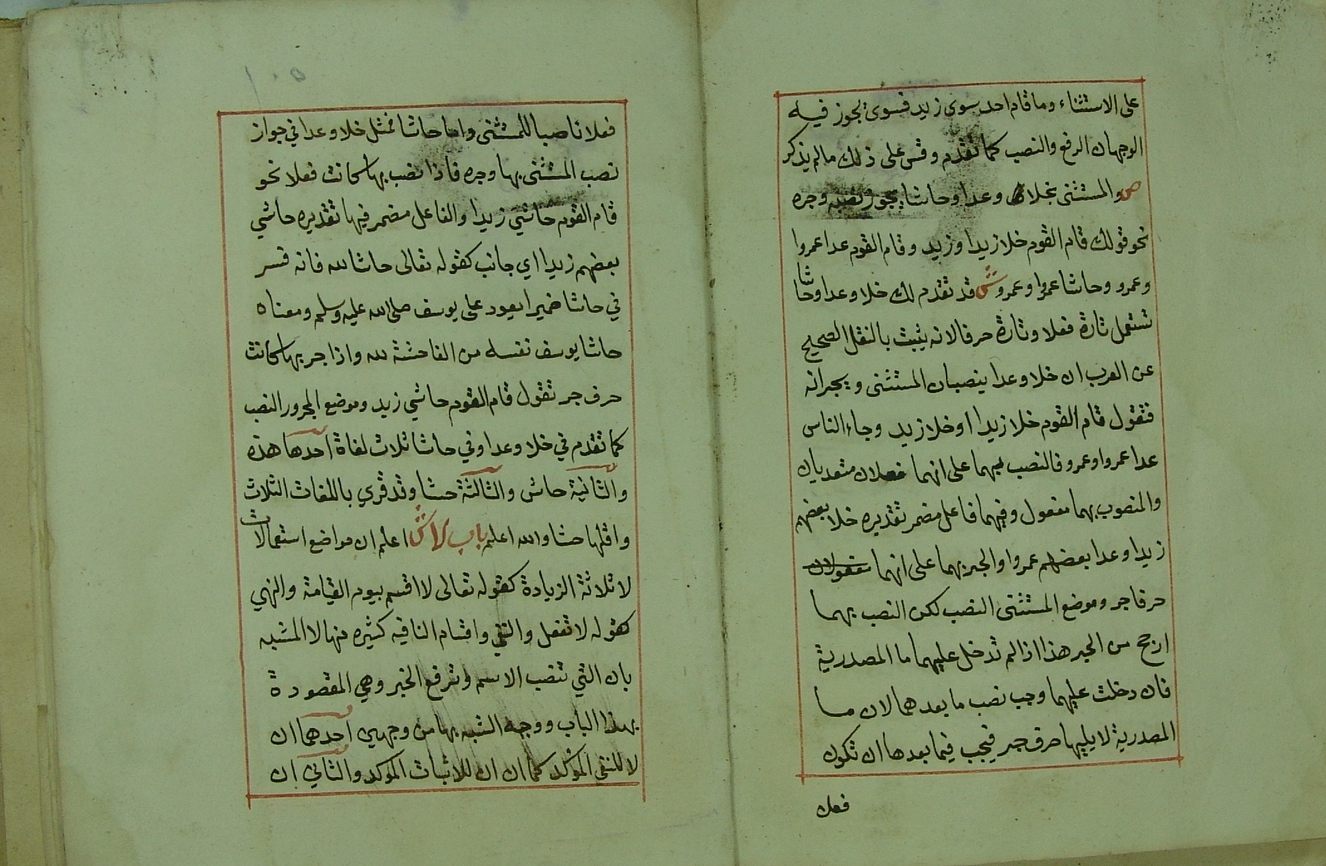 على الاستثناء وما قام احد سوى زيد فسوى يجوز فيه
الوجهان الرفع والنصب كما تقدم وقس على ذلك مالم يذكر
ص والمستثنى بخلا وعدا وحاشا يجوز نصبه وجره
نحو قولك قام القوم خلا زيدا وزيد وقام القوم عدا عمروا
وعمرو وحاشا عمروا وعمرو ش قد تقدم لك خلا وعدا وحاشا
تستعمل تارة فعلا وتارة حرفا لانه يثبت بالنقل الصحيح
عن العرب ان خلا وعدا ينصبان المستثنى ويجرانه
فتقول قام القوم خلا زيدا او خلا زيد وجاء الناس
عدا عمروا وعمرو فالنصب بهما على انهما فعلان متعديان
والمنصوب بهما مفعول وفيهما فاعل مضمر تقديره خلا بعضهم
زيدا وعدا بعضهم عمروا والجر بهما على انهما
حرفا جر وموضع المستثنى النصب لكن النصب بهما
ارجح من الجر هذا اذا لم تدخل عليهما ما المصدرية
فان دخلت عليهما وجب نصب ما بعدهما لان ما
المصدرية لا يليها حرف جر فيجب فيما بعدها ان تكون
فعل
فعلا ناصبا للمستثنى واما حاشا فمثل خلا وعدا في جواز
نصب المستثنى بها وجره فاذا نصب بها كانت فعلا نحو
قام القوم حاشى زيدا والفاعل مضمر فيها تقديره حاشى
بعضهم زيدا اي جانب كقوله تعالى حاشا لله فانه فسر
في حاشا ضميرا يعود على يوسف صلى الله عليه وسلم ومعناه
حاشا يوسف نفسه من الفاحشة لله واذا جر بها كانت
حرف جر تقول قام القوم حاشى زيد وموضع المجرور النصب
كما تقدم في خلا وعدا وفي حاشا ثلاث لغاة احدها هذه
والثانية حاش والثالثة حشا وقد قري باللغات الثلاث
واقلها حشا والله اعلم باب لا ش اعلم ان مواضع استعمالات
لا ثلاثة الزيادة كقوله تعالى لا اقسم بيوم القيامة والنهي
كقوله لا تفعل والنفي واقسام النافيه كثيره منها لا المشبه
بان التي تنصب الاسم وترفع الخبر وهي المقصودة
بهذا الباب ووجه الشبه بها من وجهين احدهما ان
لا للنفي المؤكد كما ان ان للاثبات المؤكد والثاني ان